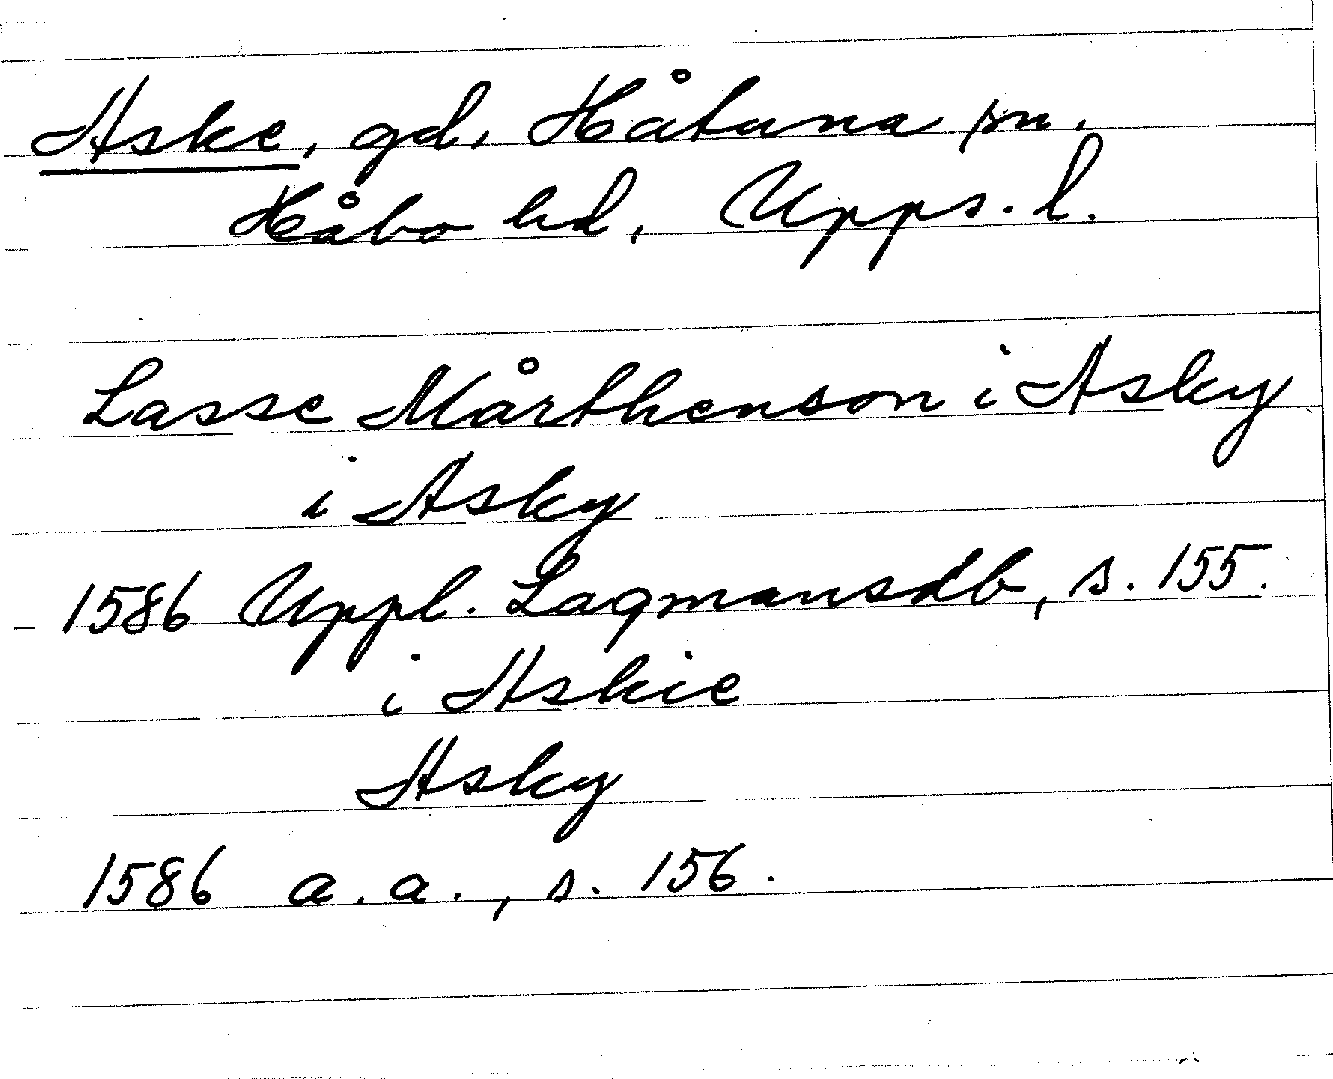 Aske, gd, Håtuna sn.
Håbo hd, Upps. l.
Lasse Mårthenson i Asky
i Asky
1586 Uppl. Lagmansdb, s. 155.
i Askie
Asky
1586 a. a., s. 156.